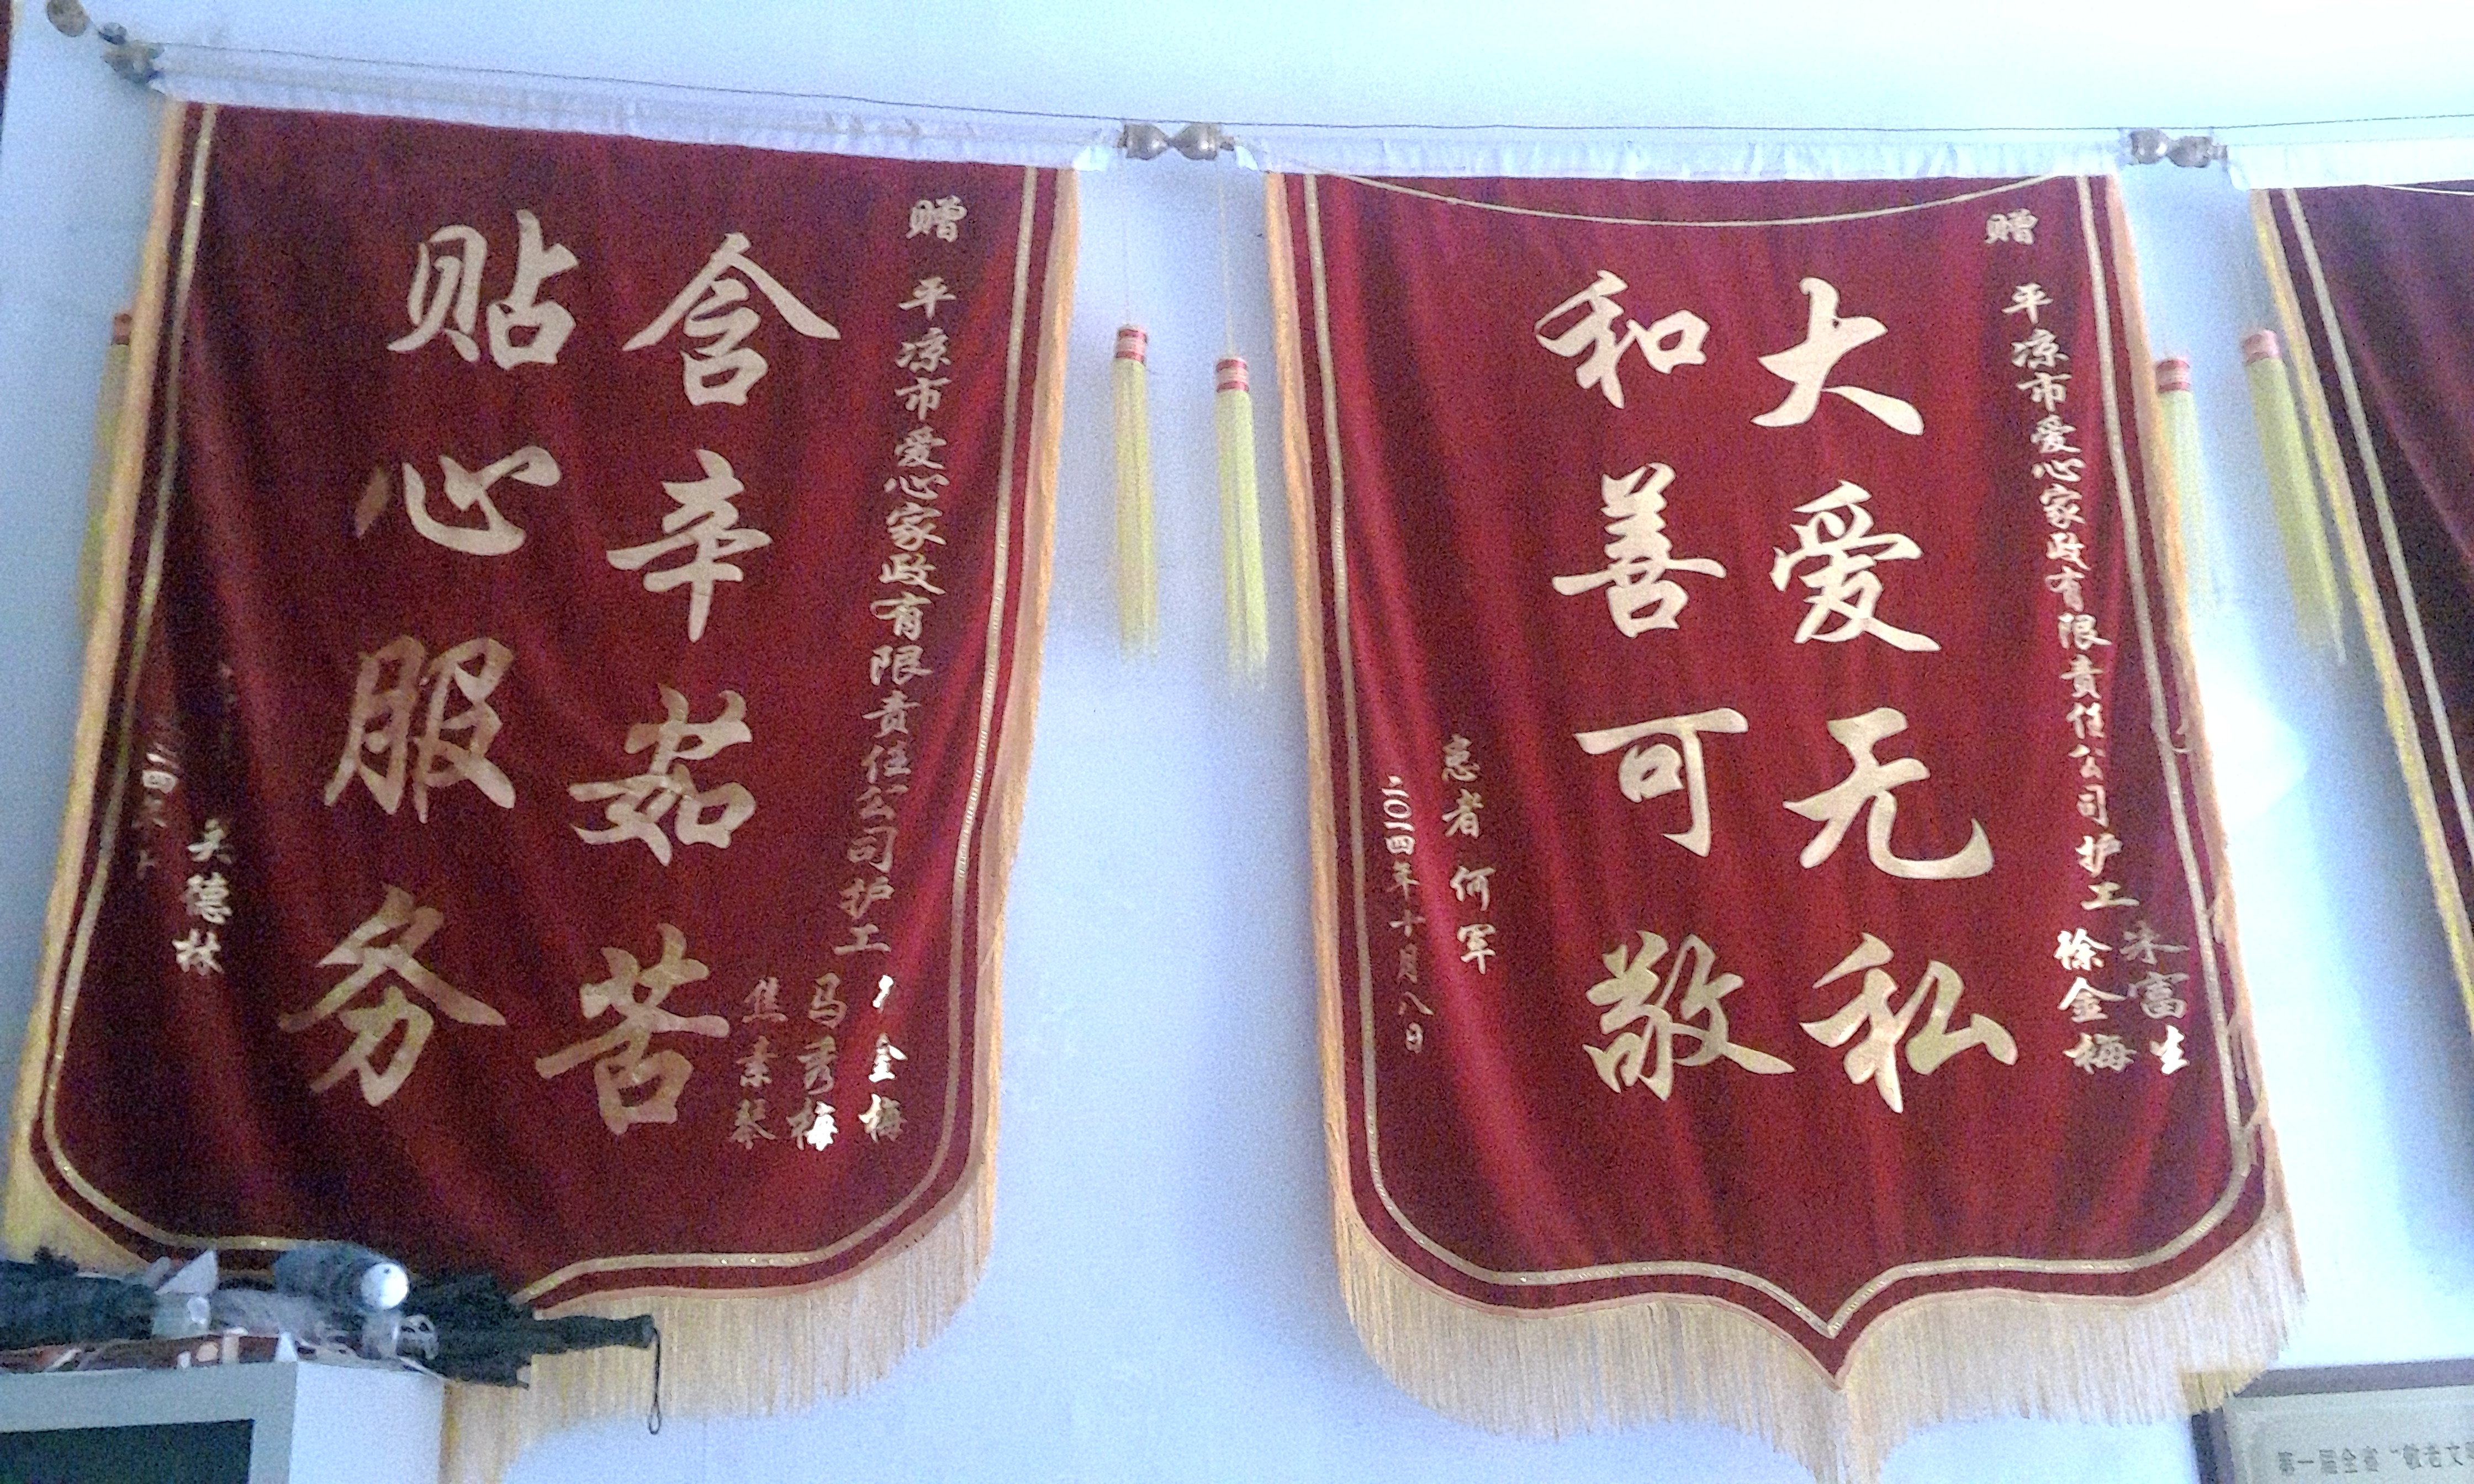 赠 平凉市爱心家政有限责任公司护工
金梅
马秀梅
焦素琴
含辛茹苦
贴心服务
德林
赠 平凉市爱心家政有限责任公司护工
朱富生
徐金梅
大爱无私
和善可敬
患者 何军
二〇一四年十月八日
第一届全省“敬老文